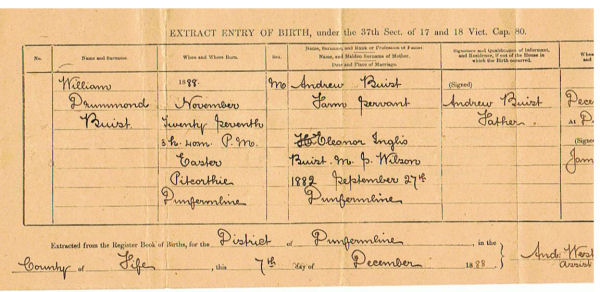 EXTRACT ENTRY OF BIRTH, under the 37th Sect. of 17 and 18 Vict. Cap. 80.
No.
Name and Surname.
When and Where Born.
Sex.
Name, Surname, and Rank or Profession of Father
Name, and Maiden Surname of Mother.
Date and Place of Marriage.
Signature and Qualification of Informant,
and Residence, if out of the House in
which the Birth occurred.
When
and
William
Drummond
Buist
1888.
November
Twenty Seventh
3 h. 40m. P.M.
Easter
Pitcorthie
Dunfermline
M
Andrew Buist
Farm Servant
Eleanor Inglis
Buist M. S. Wilson
1882 September 27th
Dunfermline
(Signed)
Andrew Buist
Father.
Dece
At D
(Signe
Jam
Extracted from the Register Book of Births, for the District of Dunfermline, in the
County of Fife, this 7th day of December 1888
And: West
Assist